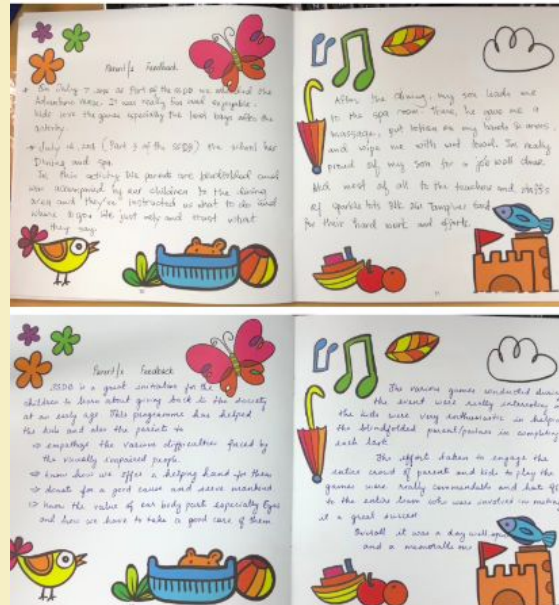 Parent/s Feedback
On July 7, 2018 as Part of the SSDB we attend the
Adventure Race. It was really fun and enjoyable.
kids love the games especially the loot bags after the
activity.
July 16, 2018 (Part 3 of the SSDB) the school has
Dining and spa.
In this activity We parents are blindfolded and
was accompanied by our children to the dining
area and they're instructed us what to do and
where to go. We just rely and trust what
they say.
10
After the dining, my son leads me
to the spa room. There, he gave me a
massage, put lotion on my hands & arms
and wipe me with wet towel. I'm really
proud of my son for a job well done.
And most of all to the teachers and staffs
of Sparkle tots Blk 261 Tampines
for their hard work and efforts.
11
Parent/s Feedback
SSDB is a great initiative for the
children to learn about giving back to the society
at an early age. This programme has helped
the kids and also the parents to
⇒ empathize the various difficulties faced by
the visually impaired people.
⇒ know how we offer a helping hand for them
⇒ donate for a good cause and serve mankind
⇒ know the value of our body part especially Eyes
and how we have to take a good care of them
The various games conducted during
the event were really interesting
the kids were very enthusiastic in helping
the blindfolded parent/partner in completing
each task.
The effort taken to engage the
entire crowd of parent and kids to play the
games were really commendable and hats off
to the entire team who were involved in making
it a great success
Overall it was a day well spent
and a memorable one